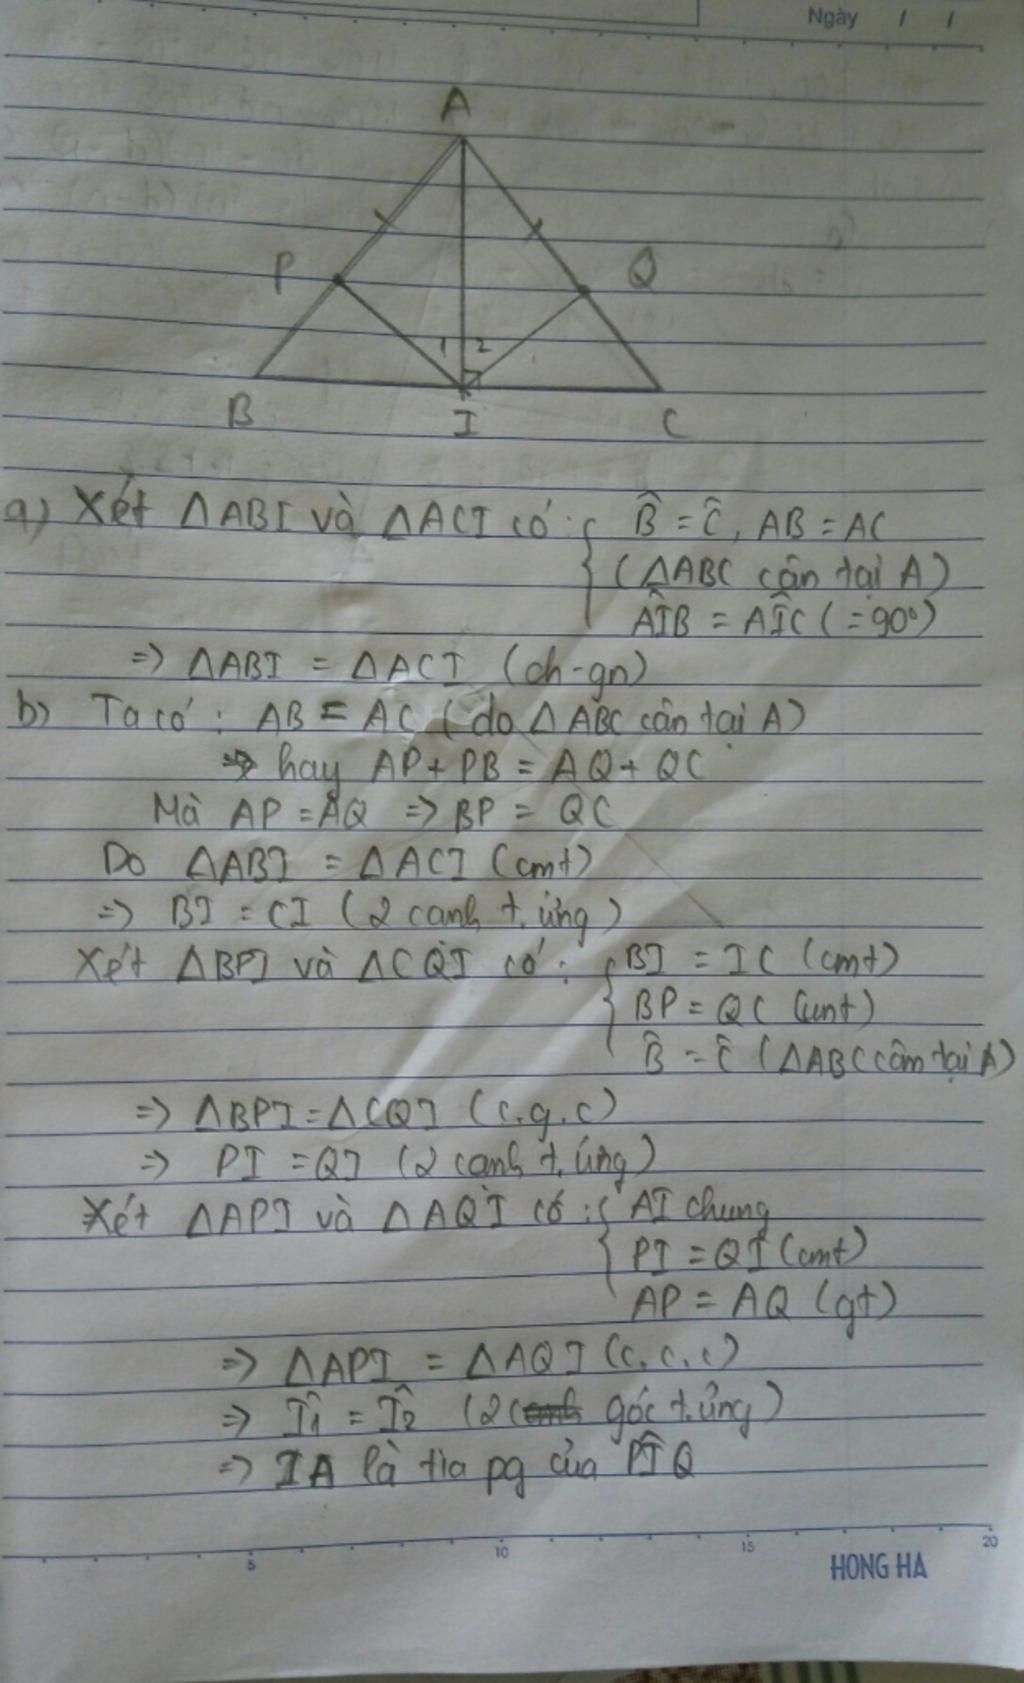 Ngày / /
A
P
Q
1 2
B
I
C
a) Xét ΔABI và ΔACI có: { B̂ = Ĉ, AB = AC
(ΔABC cân tại A)
AÎB = AÎC (=90°)
=> ΔABI = ΔACI (ch-gn)
b) Ta có: AB = AC (do ΔABC cân tại A)
=> hay AP + PB = AQ + QC
Mà AP = AQ => BP = QC
Do ΔABI = ΔACI (cmt)
=> BI = CI (2 cạnh t. ứng)
Xét ΔBPI và ΔCQI có: { BI = IC (cmt)
BP = QC (cmt)
B̂ = Ĉ (ΔABC cân tại A)
=> ΔBPI = ΔCQI (c.g.c)
=> PI = QI (2 cạnh t. ứng)
Xét ΔAPI và ΔAQI có: { AI chung
PI = QI (cmt)
AP = AQ (gt)
=> ΔAPI = ΔAQI (c.c.c)
=> Î1 = Î2 (2 góc t. ứng)
=> IA là tia pg của PÎQ
5 10 15 20
HONG HA